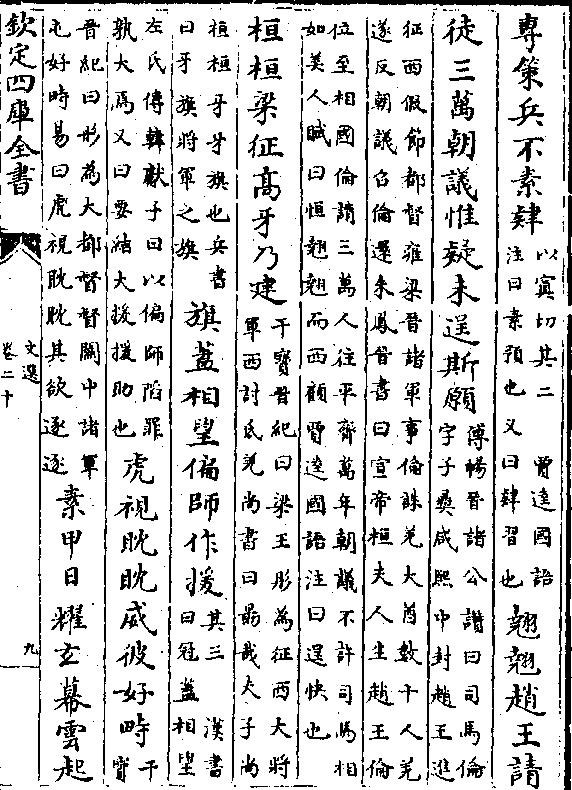 專䇿兵不素肄
以寘切其二　賈逵國語
注曰素預也又曰肄習也
翹翹趙王請
徒三萬朝議惟疑未逞斯願
傅暢晉諸公讚曰司馬倫
字子彝咸熙中封趙王進
征西假節都督雍梁晉諸軍事倫誅羌大酋數十人羌
遂反朝議召倫還朱鳳晉書曰宣帝桓夫人生趙王倫
位至相國倫請三萬人往平齊萬年朝議不許司馬相
如美人賦曰恒翹翹而西顧賈逵國語注曰逞快也
桓桓梁征高牙乃建
干寳晉紀曰梁王肜為征西大將
軍西討氐羌尚書曰朂哉夫子尚
桓桓牙牙旗也兵書
曰牙旗將軍之旗
旗蓋相望偏師作援
其三　漢書
曰冠蓋相望
左氏傳韓獻子曰以偏師陷罪
孰大焉又曰要結大援援助也
虎視眈眈威彼好畤
干
寳
晉紀曰肜為大都督督關中諸軍
屯好時易曰虎視眈眈其欲逐逐
素甲日耀玄幕雲起
欽定四庫全書
文選
卷二十
九